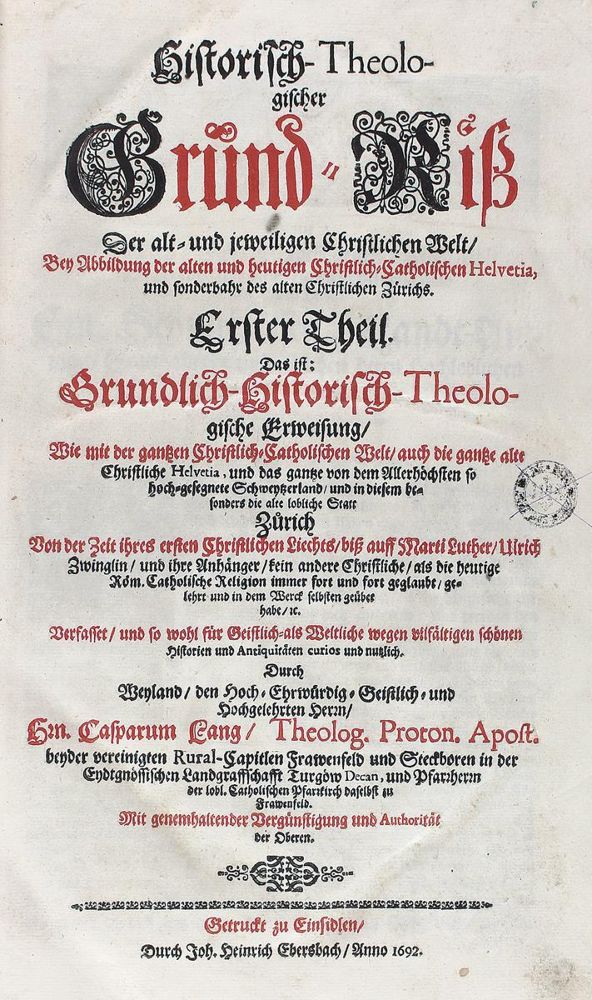 Historisch-Theolo-
gischer
Grund-Riß
Der alt- und jeweiligen Christlichen Welt/
Bey Abbildung der alten und heutigen Christlich-Catholischen Helvetia,
und sonderbahr des alten Christlichen Zürichs.
Erster Theil.
Das ist:
Grundlich-Historisch-Theolo-
gische Erweisung/
Wie mit der gantzen Christlich-Catholischen Welt/ auch die gantze alte
Christliche Helvetia, und das gantze von dem Allerhöchsten so
hoch-gesegnete Schweytzerland/ und in diesem be-
sonders die alte lobliche Statt
Zürich
Von der Zeit ihres ersten Christlichen Liechts/ biß auff Marti Luther/ Ulrich
Zwinglin/ und ihre Anhänger/ kein andere Christliche/ als die heutige
Röm. Catholische Religion immer fort und fort geglaubt/ ge-
lehrt und in dem Werck selbsten geübet
habe/ ꝛc.
Verfasset/ und so wohl für Geistlich- als Weltliche wegen vilfältigen schönen
Historien und Antiquitäten curios und nutzlich.
Durch
Weyland/ den Hoch-Ehrwürdig-Geistlich-und
Hochgelehrten Herrn/
Hrn. Casparum Lang/ Theolog. Proton. Apost.
beyder vereinigten Rural-Capitlen Frawenfeld und Steckboren in der
Eydtgnössischen Landgraffschafft Turgöw Decan, und Pfarrherrn
der lobl. Catholischen Pfarrkirch daselbst zu
Frawenfeld.
Mit genemhaltender Vergünstigung und Authorität
der Oberen.
Getruckt zu Einsidlen/
Durch Joh. Heinrich Ebersbach/ Anno 1692.